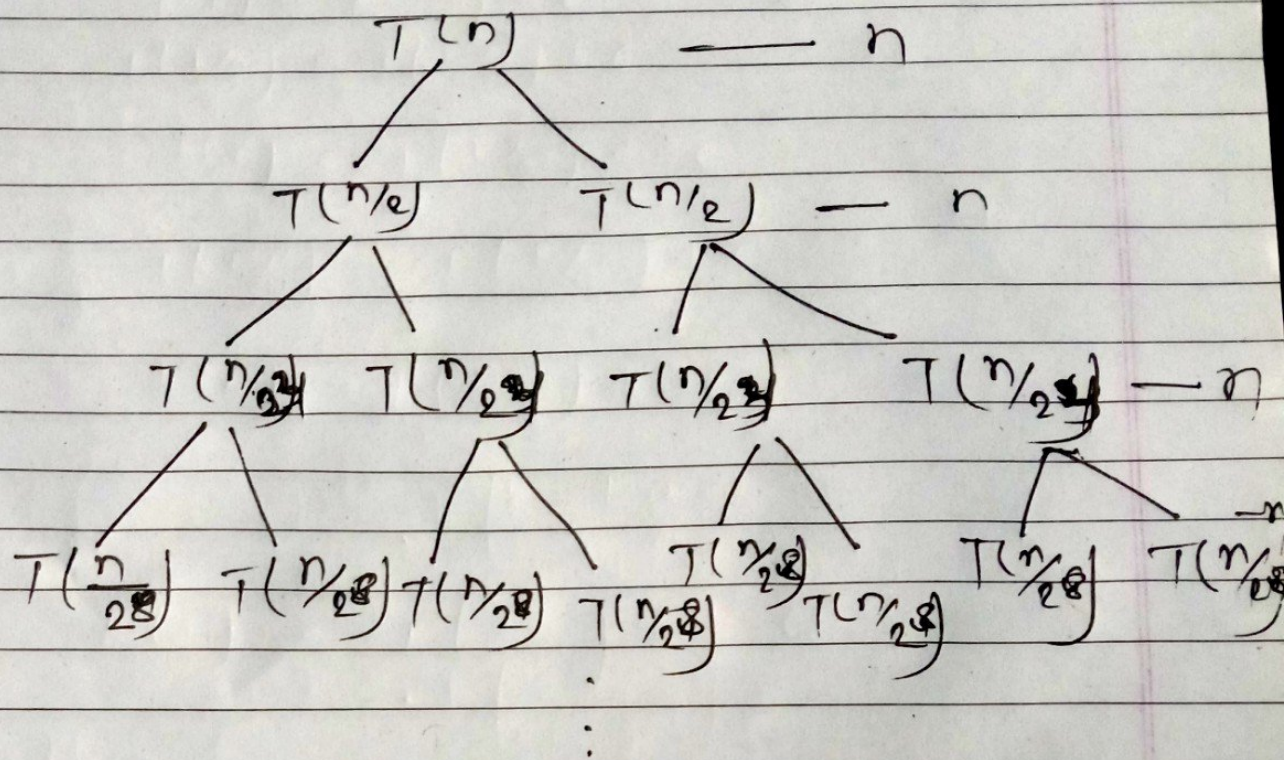 T(n) — n
T(n/2) T(n/2) — n
T(n/2 T(n/2 T(n/2 T(n/2 — n
T(n/28) T(n/28) T(n/28) T(n/28) T(n/28) T(n/28) T(n/28) T(n/28) –n